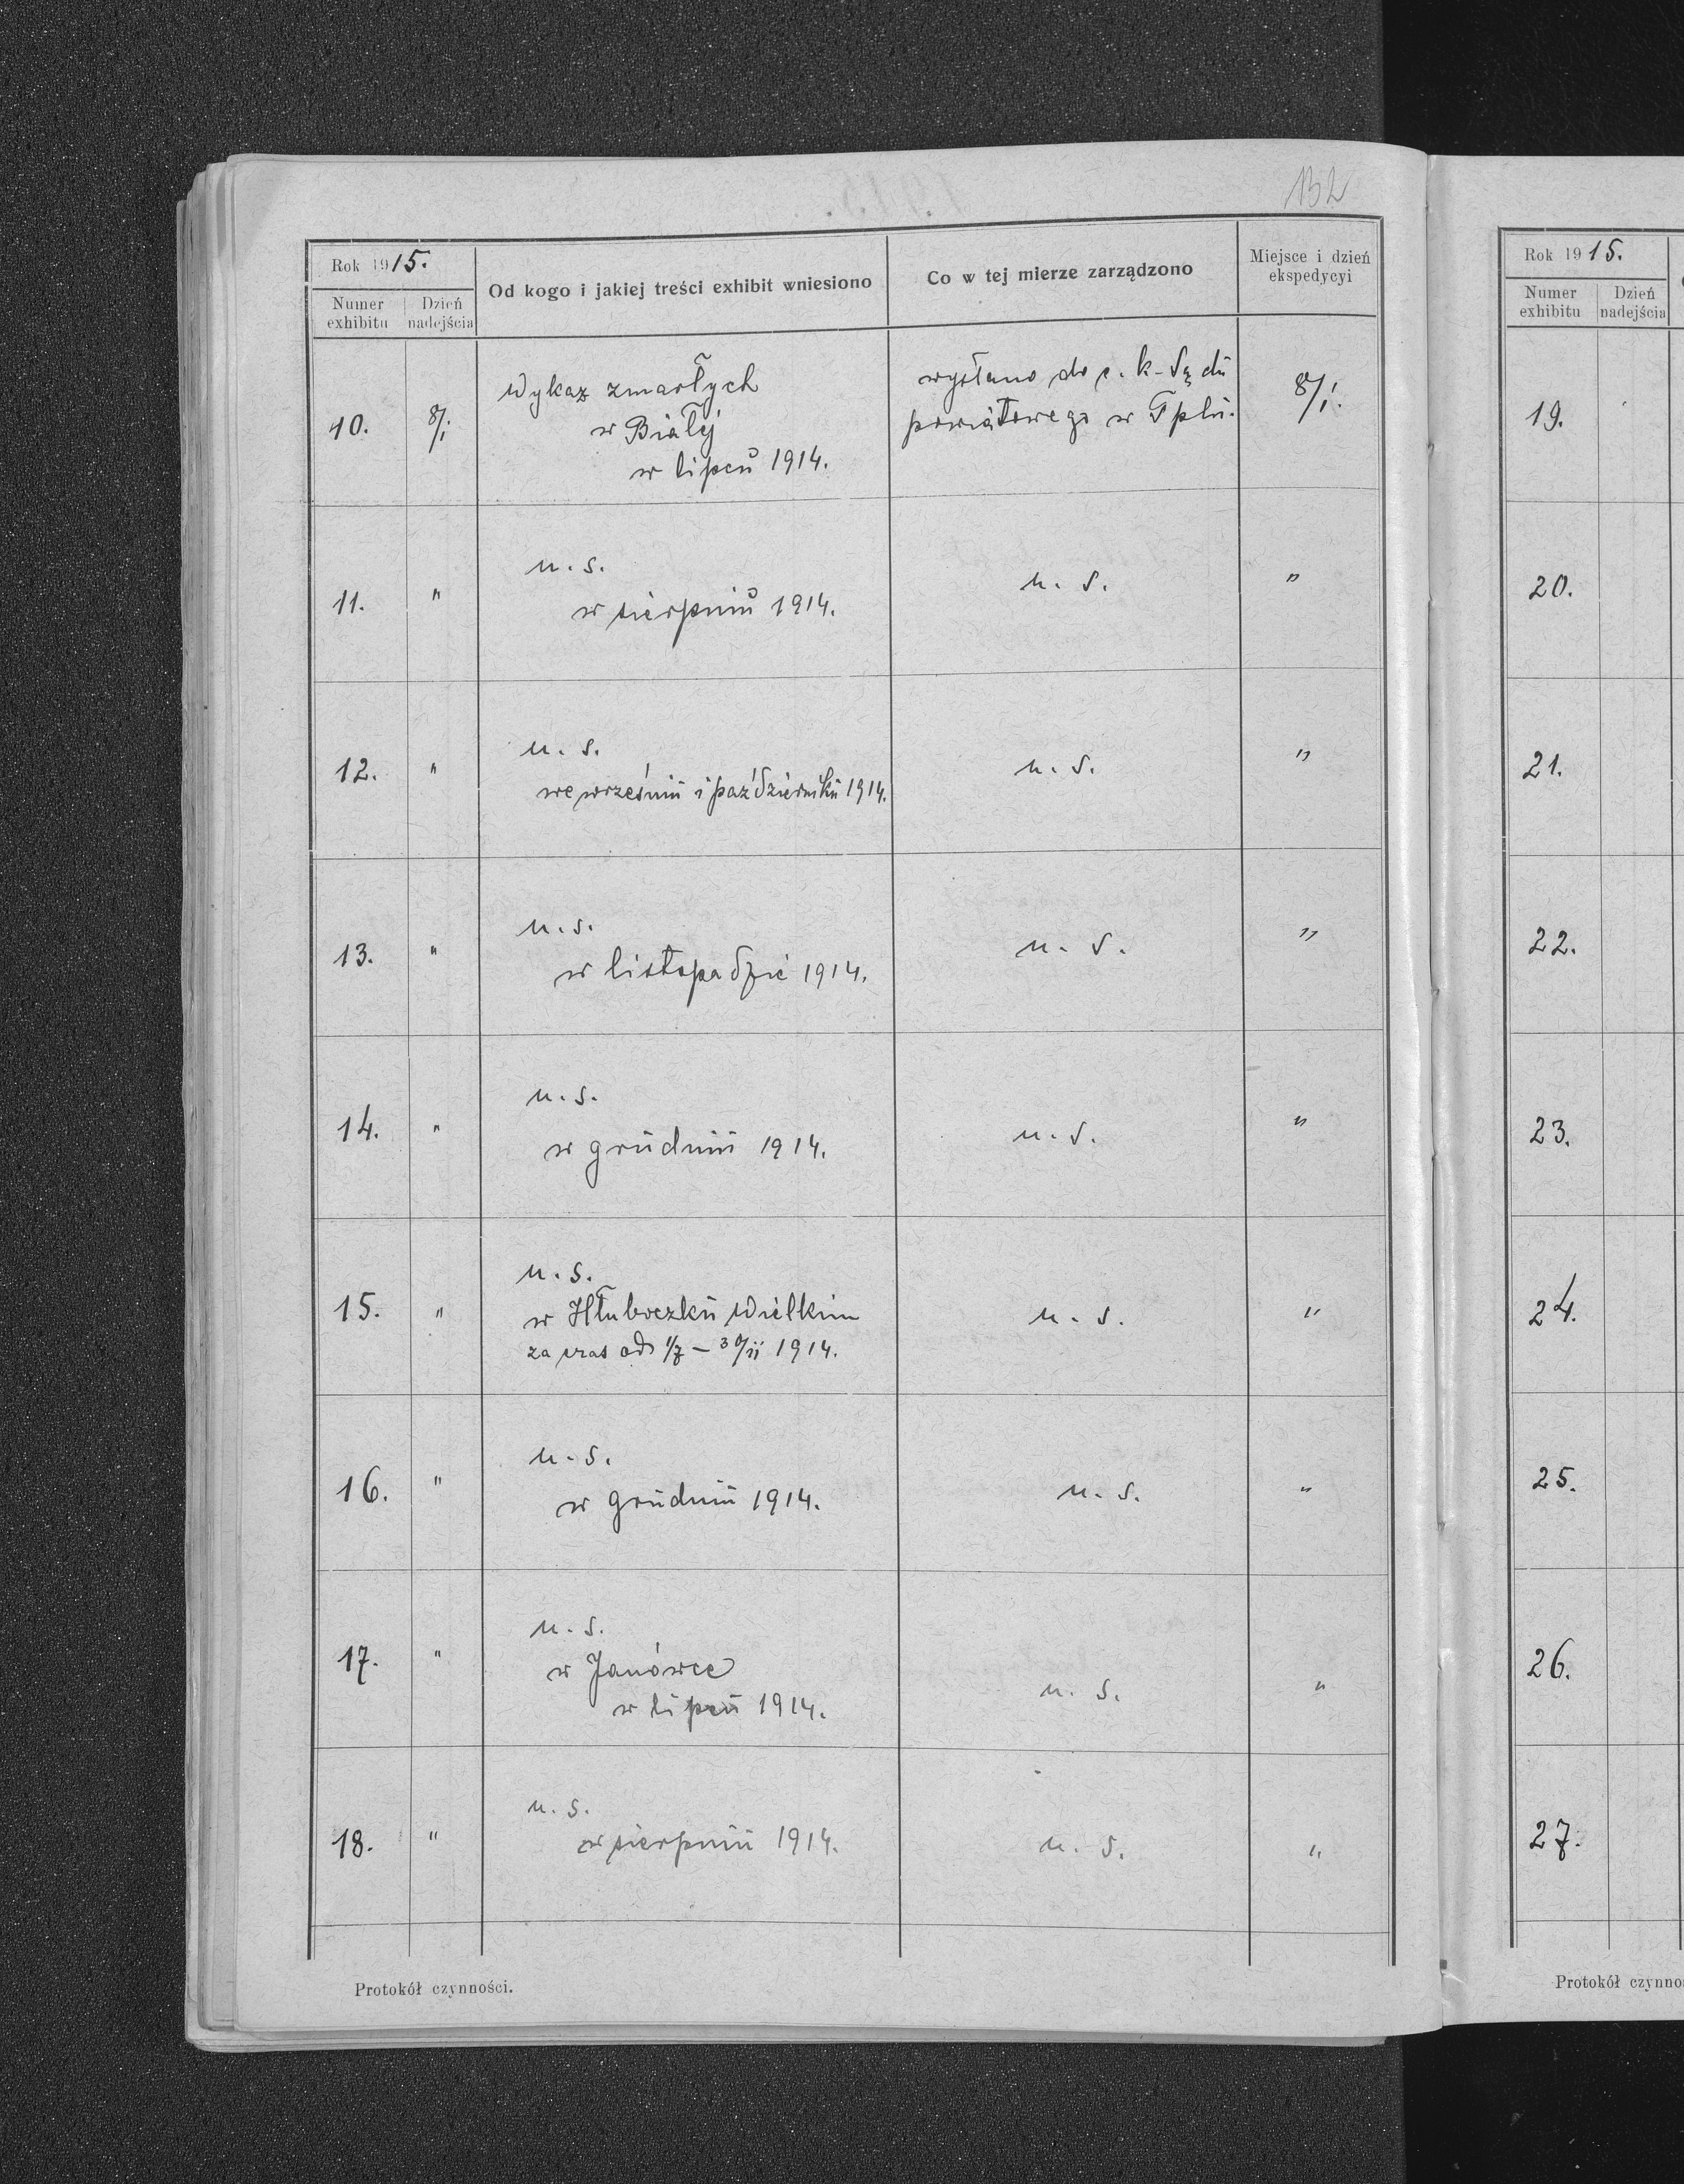 132
Rok 1915.
Numer exhibitu
Dzień nadejścia
Od kogo i jakiej treści exhibit wniesiono
Co w tej mierze zarządzono
Miejsce i dzień ekspedycyi
10.
8/I
Wykaz zmarłych
w Białej
w lipcu 1914.
wysłano do c. k. Sądu
powiatowego w Tplu.
8/I.
11.
"
u. s.
w sierpniu 1914.
u. s.
"
12.
"
u. s.
we wrześniu i październiku 1914.
u. s.
"
13.
"
u. s.
w listopadzie 1914.
u. s.
"
14.
"
u. s.
w grudniu 1914.
u. s.
"
15.
"
u. s.
w Hłuboczku Wielkim
za czas od 1/7 – 30/11 1914.
u. s.
"
16.
"
u. s.
w grudniu 1914.
u. s.
"
17.
"
u. s.
w Janówce
w lipcu 1914.
u. s.
"
18.
"
u. s.
w sierpniu 1914.
u. s.
"
Protokół czynności.
Rok 1915.
Numer exhibitu
Dzień nadejścia
19.
20.
21.
22.
23.
24.
25.
26.
27.
Protokół czynno